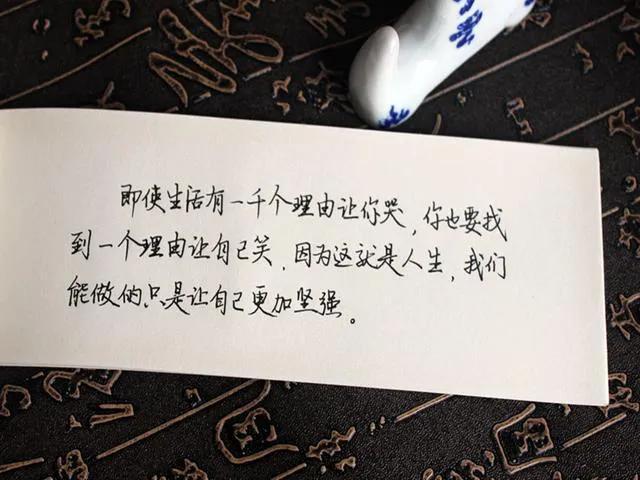 即使生活有一千个理由让你哭，你也要找
到一个理由让自己笑，因为这就是人生，我们
能做的，只是让自己更加坚强。